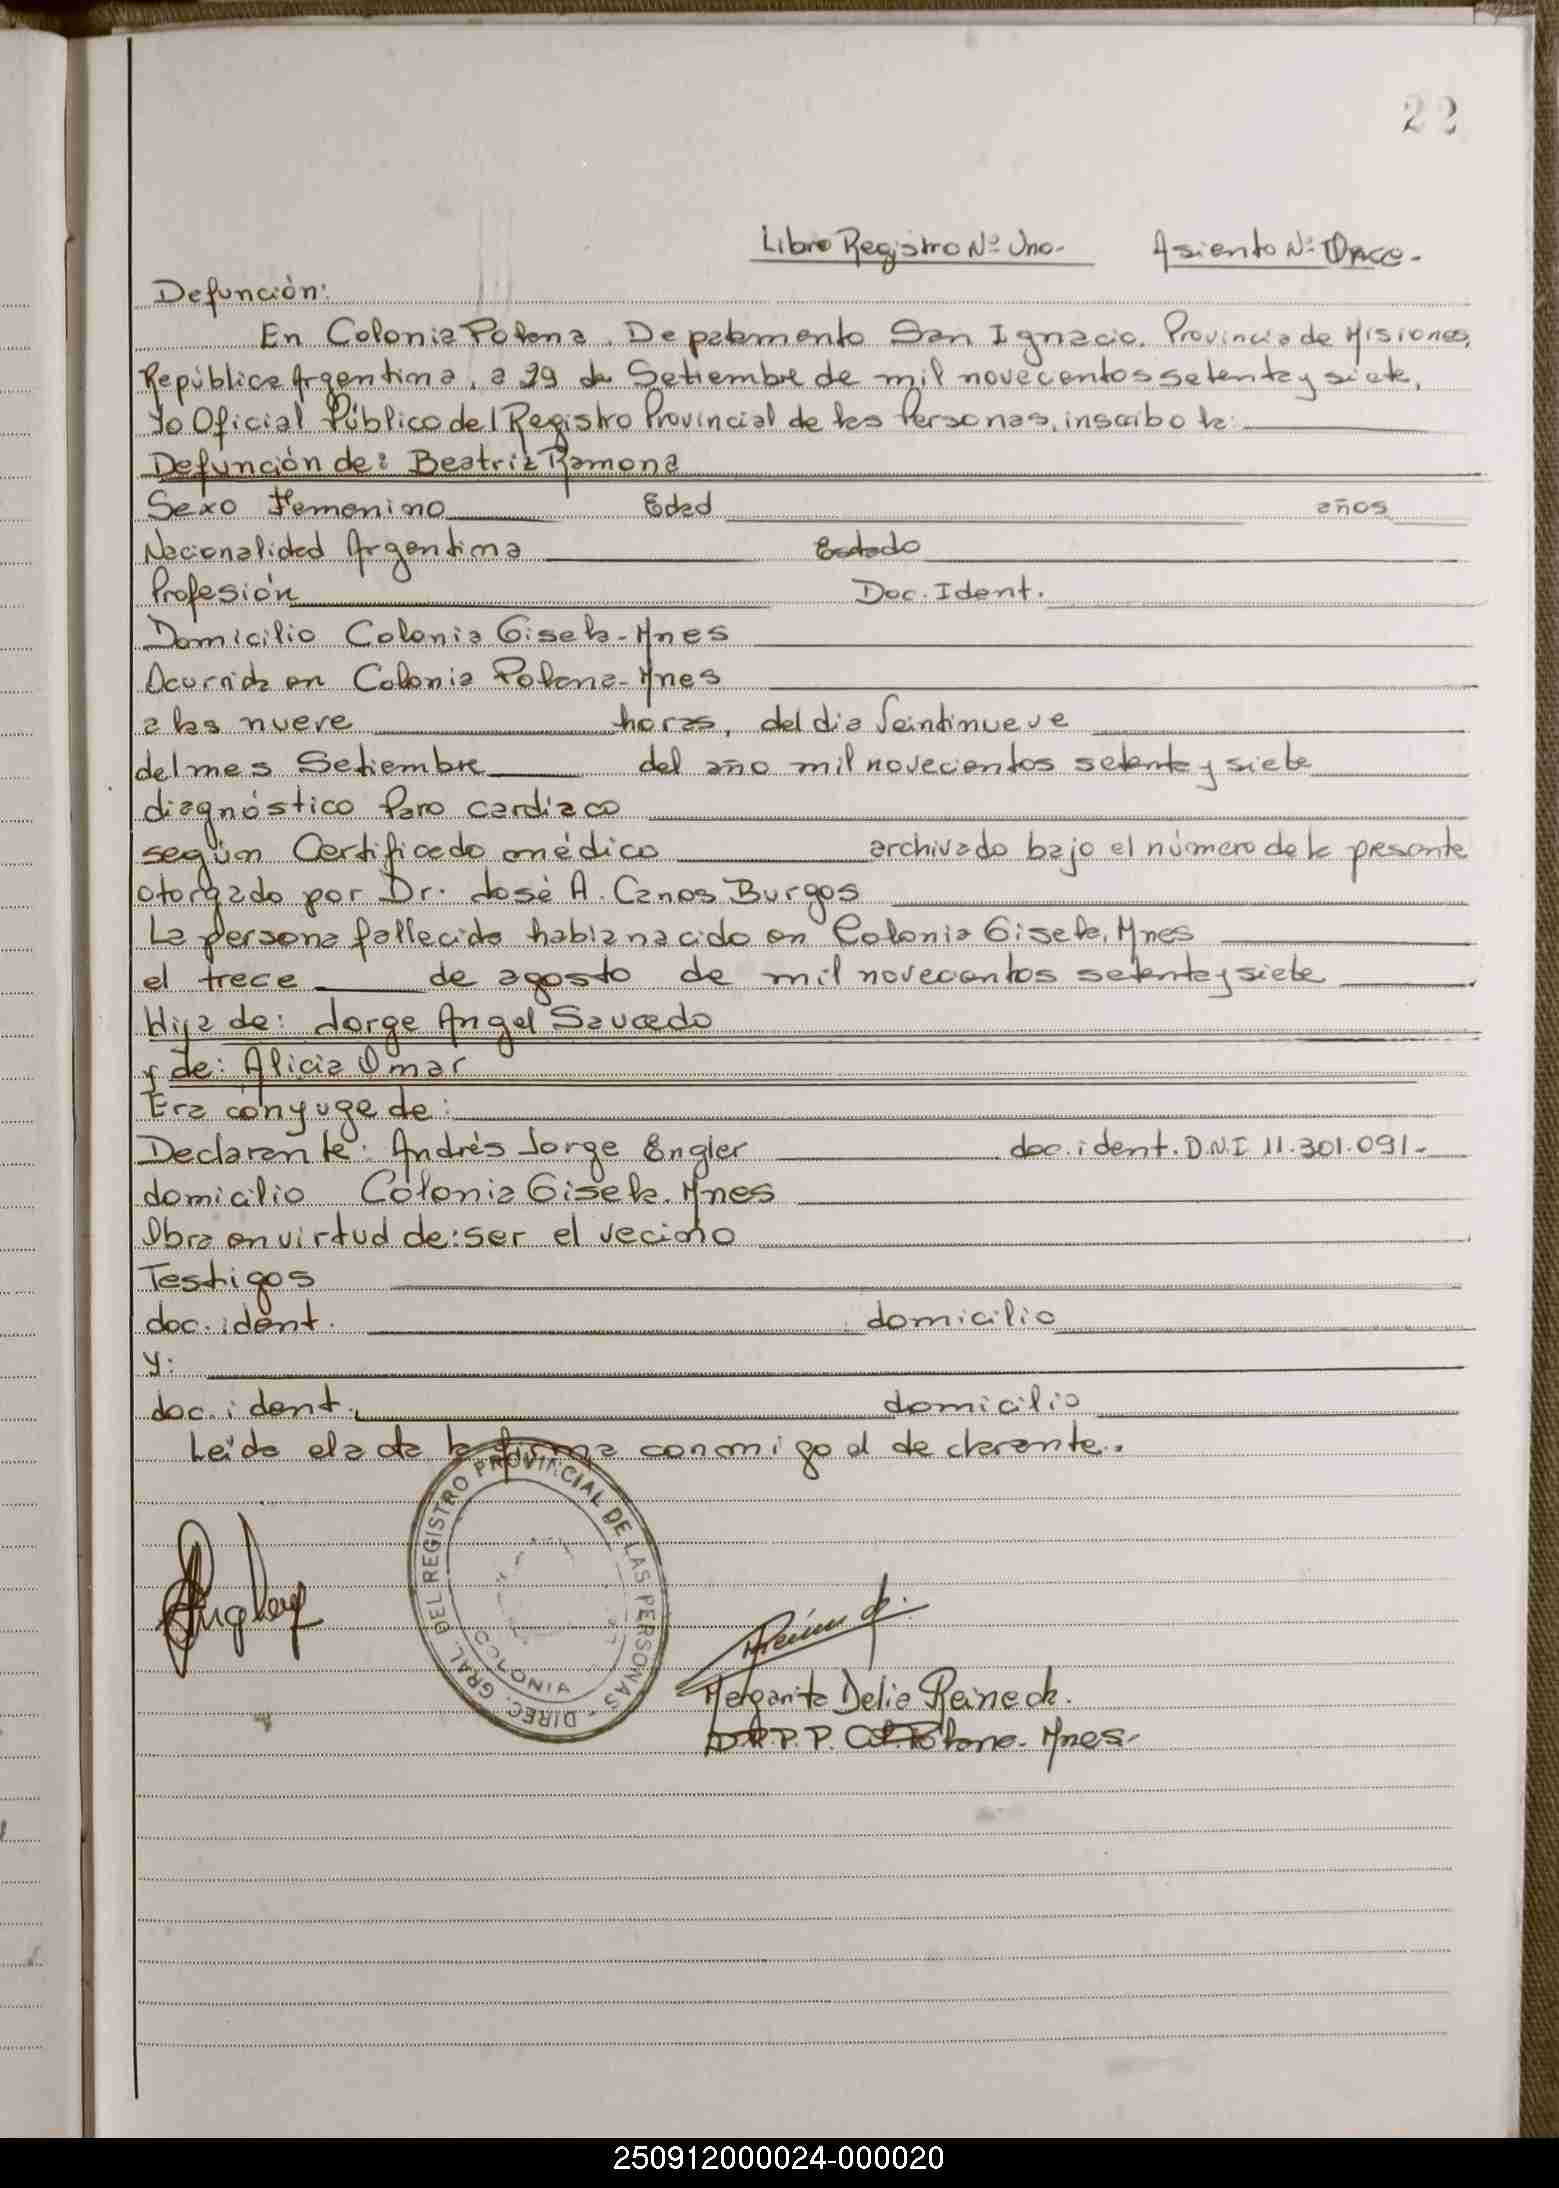 22
Libro Registro Nº Uno- Asiento Nº Once-
Defunción:
En Colonia Polana, Departamento San Ignacio, Provincia de Misiones,
República Argentina, a 29 de Setiembre de mil novecientos setenta y siete,
Yo Oficial Público del Registro Provincial de las Personas, inscribo la:
Defunción de: Beatriz Ramona
Sexo Femenino Edad años
Nacionalidad Argentina Estado
Profesión Doc. Ident.
Domicilio Colonia Gisela-Mnes
Ocurrida en Colonia Polana-Mnes
a las nueve horas, del dia Veintinueve
del mes Setiembre del año mil novecientos setenta y siete
diagnóstico Paro cardíaco
según Certificado médico archivado bajo el número de la presente
otorgado por Dr. José A. Canos Burgos
La persona fallecida habia nacido en Colonia Gisela, Mnes
el trece de agosto de mil novecientos setenta y siete
Hija de: Jorge Angel Saucedo
y de: Alicia Omar
Era cónyuge de:
Declarante: Andrés Jorge Engler doc. ident. D.N.I 11.301.091-
domicilio Colonia Gisela. Mnes
Obra en virtud de: ser el vecino
Testigos
doc. ident. domicilio
y:
doc. ident. domicilio
Leída el acta la firma conmigo el declarante.
DIREC. GRAL. DEL REGISTRO PROVINCIAL DE LAS PERSONAS -
COLONIA
Margarita Delia Reineck.
P.P. Polana. Mnes.
250912000024-000020